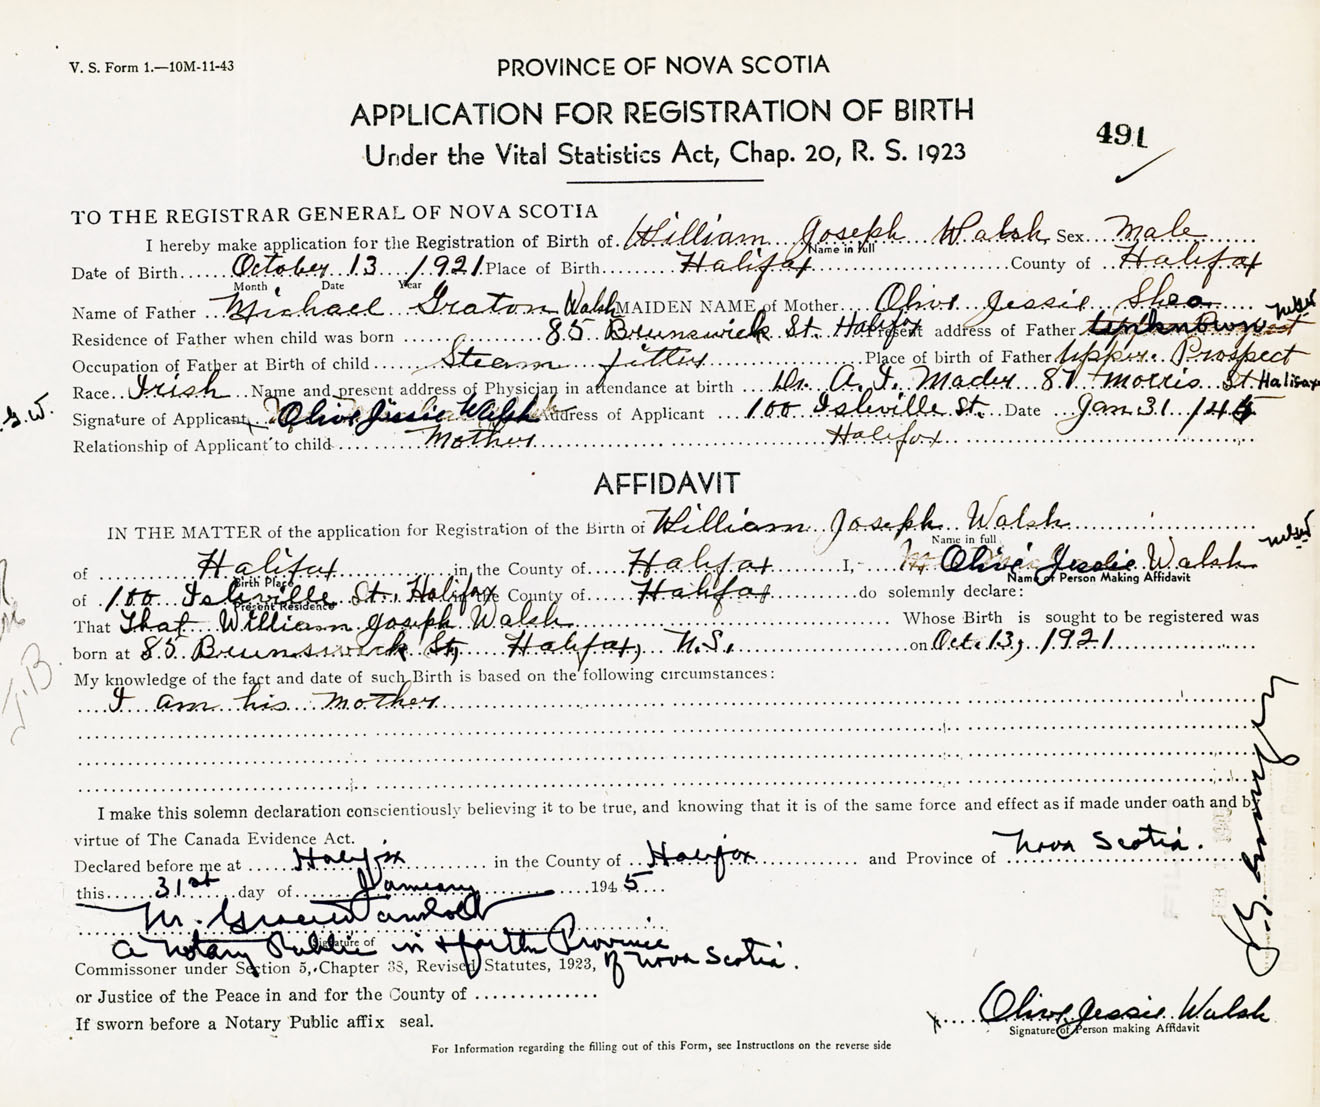 V. S. Form 1.—10M-11-43
PROVINCE OF NOVA SCOTIA
APPLICATION FOR REGISTRATION OF BIRTH
491
Under the Vital Statistics Act, Chap. 20, R. S. 1923
TO THE REGISTRAR GENERAL OF NOVA SCOTIA
I hereby make application for the Registration of Birth of William Joseph Walsh Sex Male
Name in full
Date of Birth October 13 1921 Place of Birth Halifax County of Halifax
Month Date Year
Name of Father Michael Graton Walsh MAIDEN NAME of Mother Olive Jessie Shea
Residence of Father when child was born 85 Brunswick St. Halifax Present address of Father Unknown
Occupation of Father at Birth of child Steam fitter Place of birth of Father Upper Prospect
Race Irish Name and present address of Physician in attendance at birth Dr. A. I. Mader 87 Morris St Halifax
Signature of Applicant Olive Jessie Walsh Address of Applicant 100 Isleville St. Date Jan 31 /45
Relationship of Applicant to child Mother Halifax
AFFIDAVIT
IN THE MATTER of the application for Registration of the Birth of William Joseph Walsh
Name in full
of Halifax in the County of Halifax I, Olive Jessie Walsh
Birth Place Name of Person Making Affidavit
of 100 Isleville St. Halifax the County of Halifax do solemnly declare:
Present Residence
That That William Joseph Walsh Whose Birth is sought to be registered was
born at 85 Brunswick St, Halifax, N.S. on Oct. 13, 1921
My knowledge of the fact and date of such Birth is based on the following circumstances:
I am his mother
I make this solemn declaration conscientiously believing it to be true, and knowing that it is of the same force and effect as if made under oath and by
virtue of The Canada Evidence Act.
Declared before me at Halifax in the County of Halifax and Province of Nova Scotia.
this 31st day of January 1945
A Notary Public in & for the Province
Signature of
of Nova Scotia.
Commissoner under Section 5, Chapter 38, Revised Statutes, 1923,
or Justice of the Peace in and for the County of
If sworn before a Notary Public affix seal.
x Olive Jessie Walsh
Signature of Person making Affidavit
For Information regarding the filling out of this Form, see Instructions on the reverse side